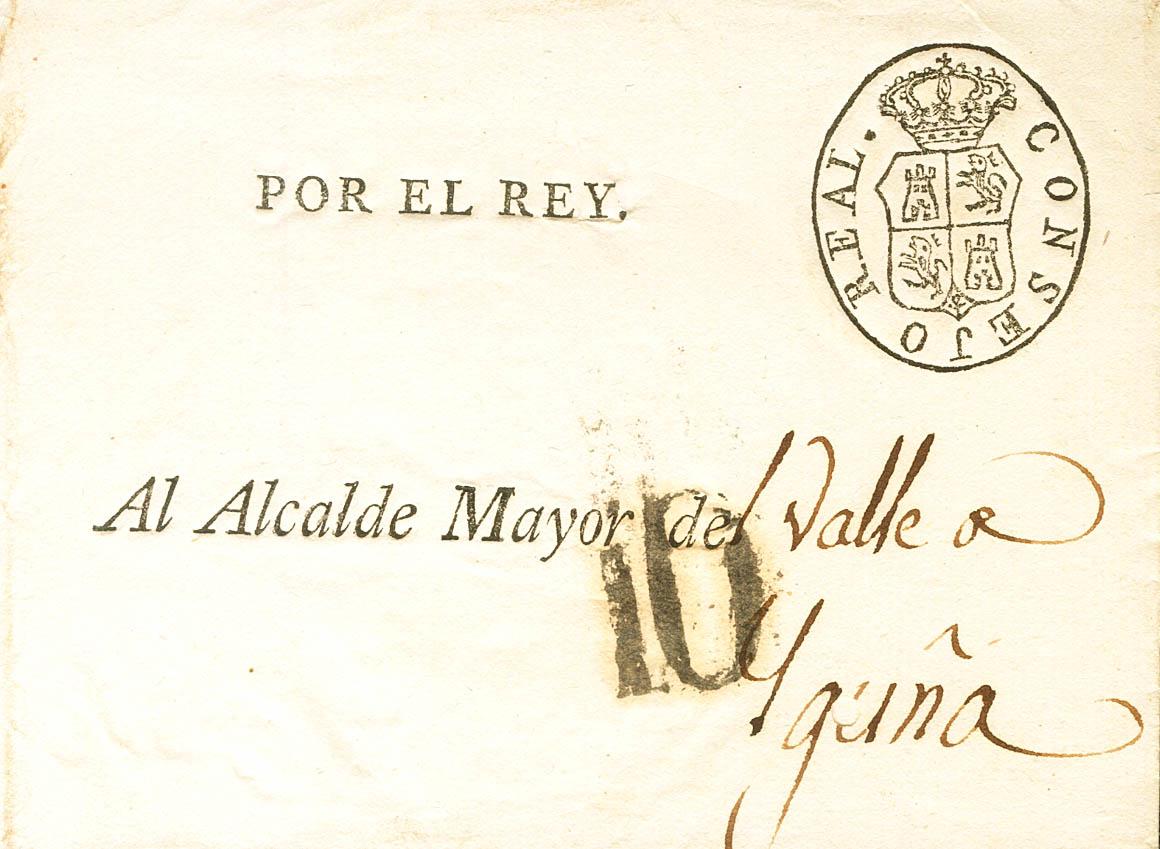 CONSEJO REAL.
POR EL REY.
Al Alcalde Mayor del Valle de
10
Yguña